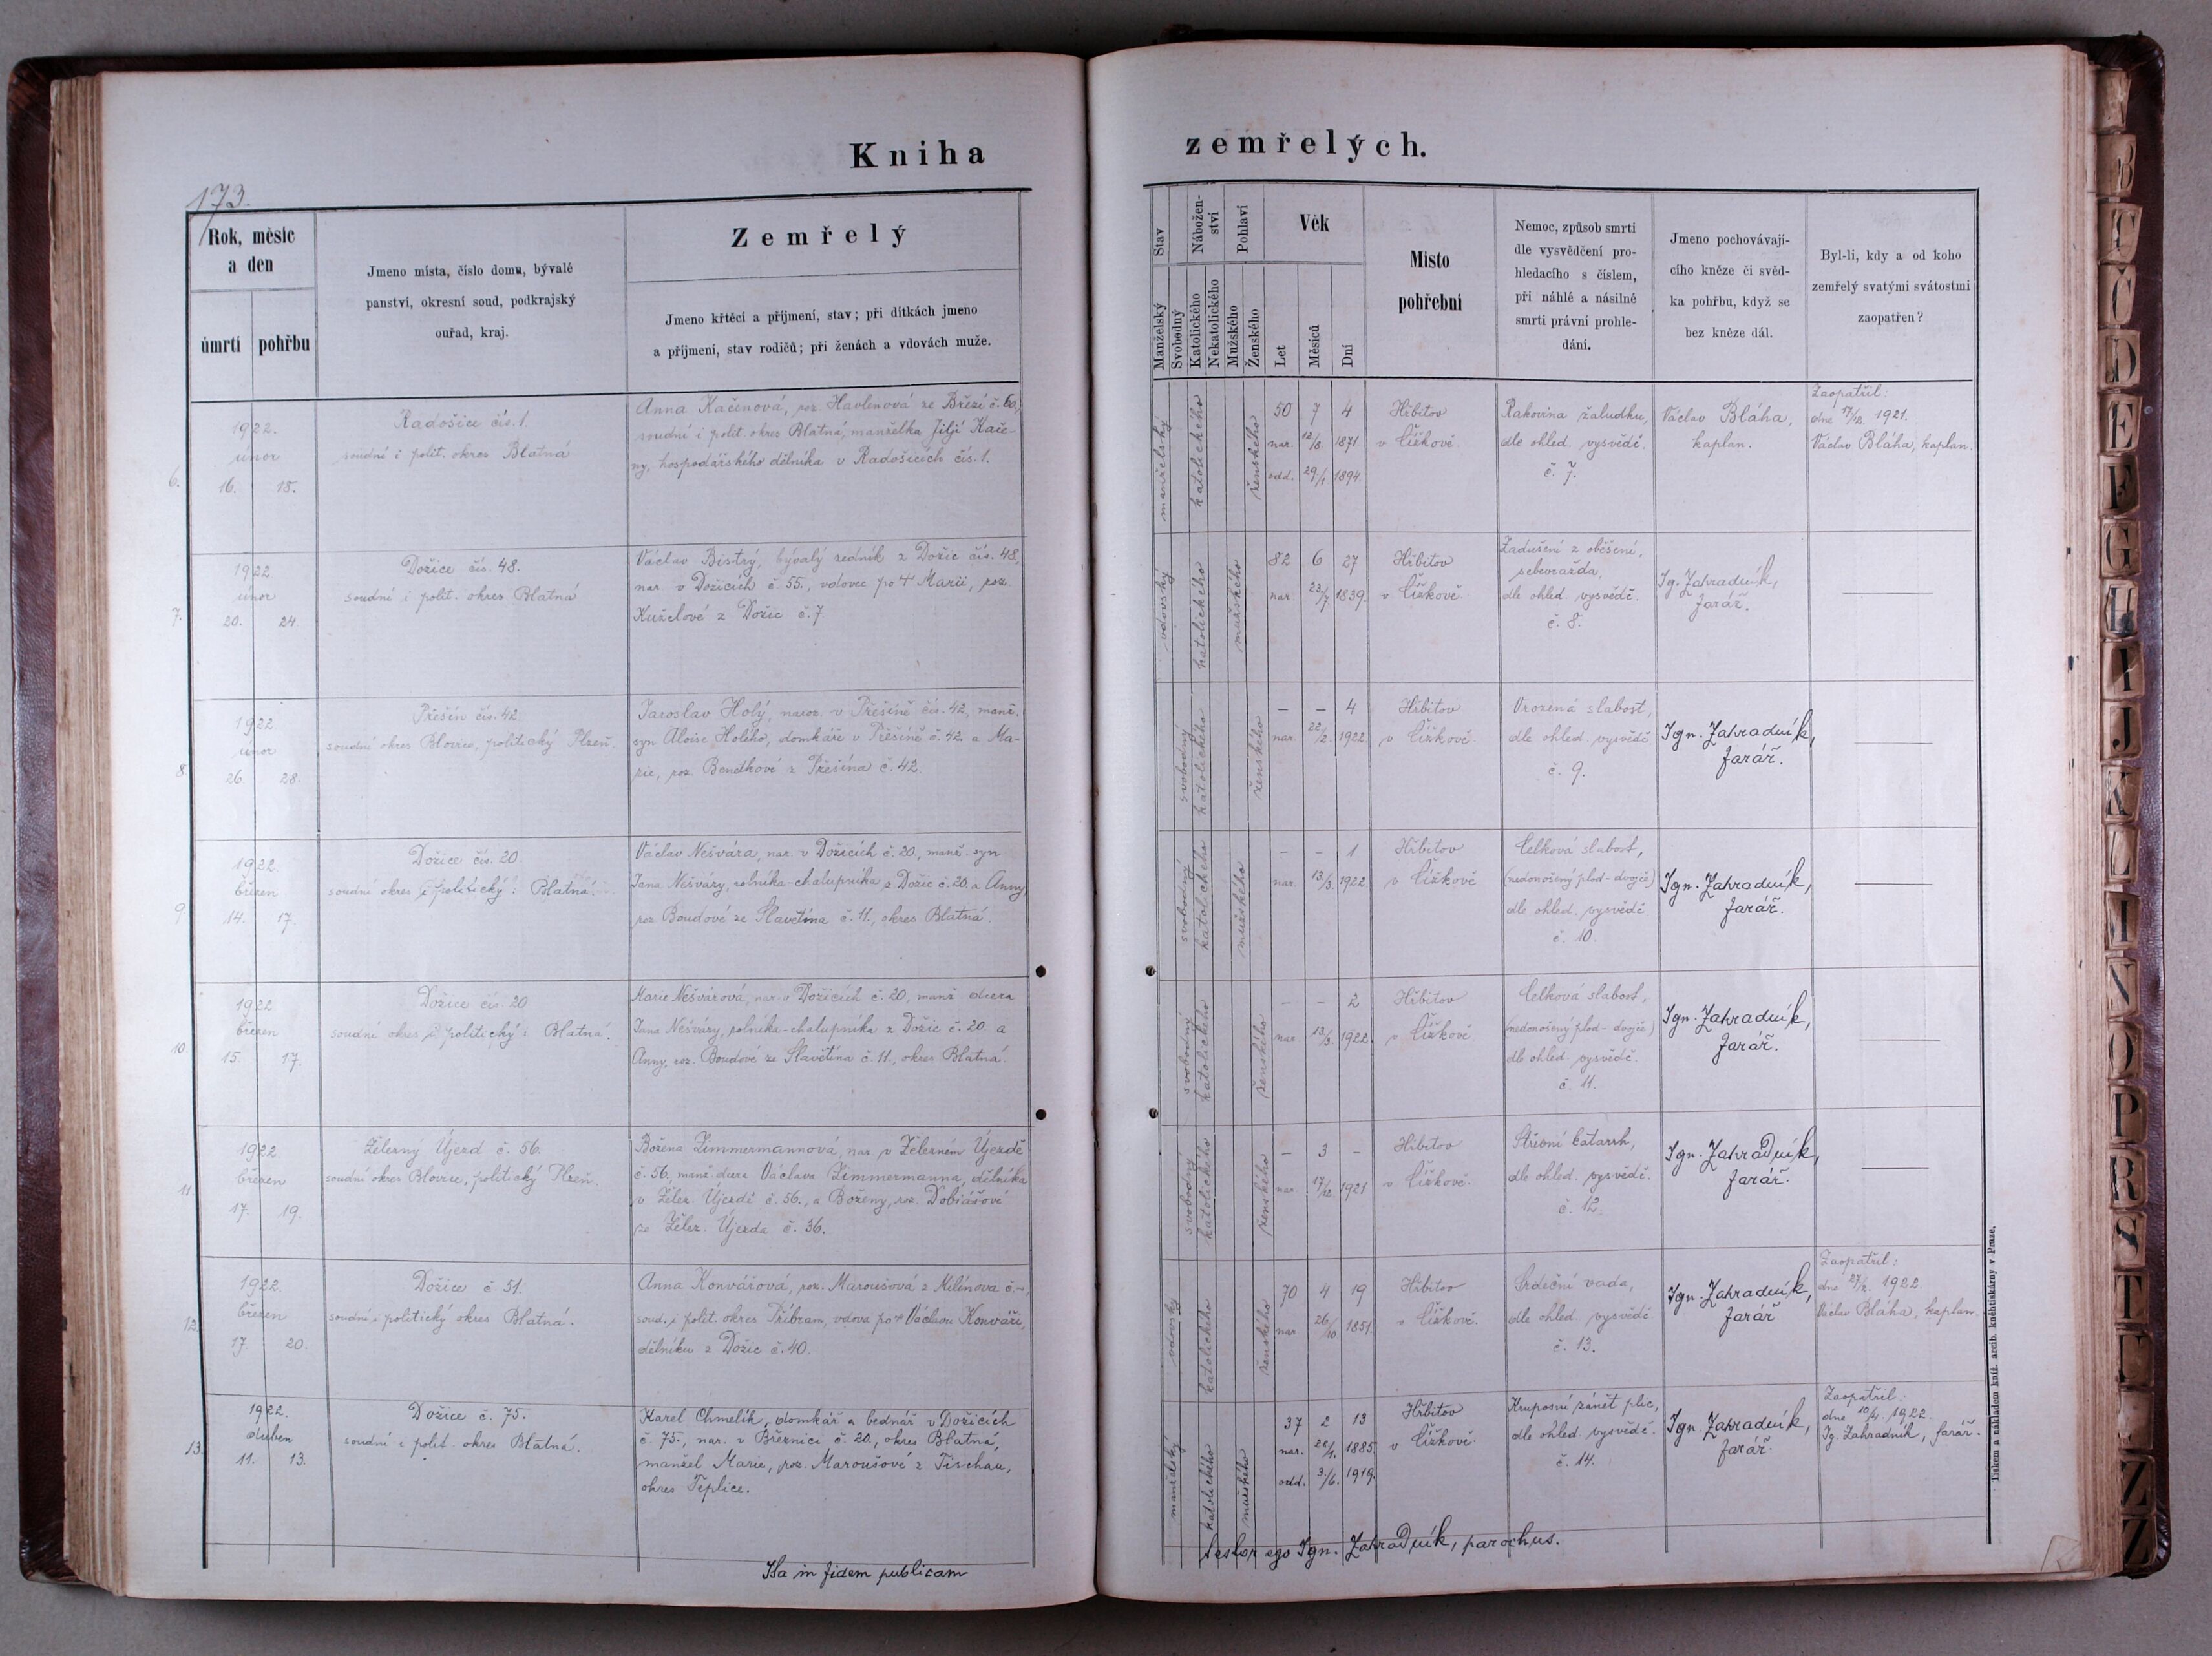 Kniha
zemřelých.
173.
Rok, měsíc
a den
úmrtí
pohřbu
Jmeno místa, číslo domu, bývalé
panství, okresní soud, podkrajský
ouřad, kraj.
Zemřelý
Jmeno křtěcí a příjmení, stav; při dítkách jmeno
a příjmení, stav rodičů; při ženách a vdovách muže.
Stav
Manželský
Svobodný
Nábožen-
ství
Katolického
Nekatolického
Pohlaví
Mužského
Ženského
Věk
Let
Měsíců
Dní
Místo
pohřební
Nemoc, způsob smrti
dle vysvědčení pro-
hledacího s číslem,
při náhlé a násilné
smrti právní prohle-
dání.
Jmeno pochovávají-
cího kněze či svěd-
ka pohřbu, když se
bez kněze dál.
Byl-li, kdy a od koho
zemřelý svatými svátostmi
zaopatřen?
6.
1922.
únor
16. 18.
Radošice čís. 1.
soudní i polit. okres Blatná
Anna Kačenová, roz. Havlenová ze Březí č. 60,
soudní i polit. okres Blatná, manželka Jiljí Kače-
ny, hospodářského dělníka v Radošicích čís. 1.
manželský
katolického
ženského
50 7 4
nar. 12/8. 1871.
odd. 29./1. 1894.
Hřbitov
v Čížkově.
Rakovina žaludku,
dle ohled. vysvědč.
č. 7.
Václav Bláha,
kaplan.
Zaopatřil:
dne 17/12. 1921.
Václav Bláha, kaplan.
7.
1922
únor
20. 24
Dožice čís. 48.
soudní i polit. okres Blatná
Václav Bistrý, bývalý zedník z Dožic čís. 48,
nar. v Dožicích č. 55., vdovec po † Marii, roz.
Kuželové z Dožic č. 7
vdovský
katolického
mužského
82 6 27
nar. 23./7 1839.
Hřbitov
v Čížkově.
Zadušení z oběšení,
sebevražda,
dle ohled. vysvědč.
č. 8.
Ig. Zahradník,
farář.
8.
1922
únor
26. 28.
Přešín čís. 42.
soudní okres Blovice, politický Plzeň.
Jaroslav Holý, naroz. v Přešíně čís. 42, manž.
syn Aloise Holého, domkáře v Přešíně č. 42 a Ma-
rie, roz. Benedkové z Přešína č. 42.
svobodný
katolického
ženského
– – 4
nar. 22/2. 1922
Hřbitov
v Čížkově.
Vrozená slabost,
dle ohled. vysvědč
č. 9.
Ign. Zahradník,
farář.
9
1922.
březen
14. 17.
Dožice čís. 20.
soudní okres i politický: Blatná.
Václav Nešvára, nar. v Dožicích č. 20., manž. syn
Jana Nešváry, rolníka-chalupníka z Dožic č. 20. a Anny,
roz. Boudové ze Slavětína č. 11., okres Blatná.
svobodný
katolického
mužského
– – 1
nar. 13./3. 1922
Hřbitov
v Čížkově
Celková slabost,
(nedonošený plod - dvojče)
dle ohled. vysvědč
č. 10.
Ign. Zahradník,
farář.
10.
1922
březen
15. 17.
Dožice čís. 20
soudní okres i politický: Blatná.
Marie Nešvárová, nar. v Dožicích č. 20, manž dcera
Jana Nešváry, rolníka-chalupníka z Dožic č. 20 a
Anny, roz. Boudové ze Slavětína č. 11., okres Blatná.
svobodný
katolického
ženského
– – 2
nar. 13/3 1922.
Hřbitov
v Čížkově
Celková slabost,
(nedonošený plod - dvojče)
dle ohled. vysvědč.
č. 11.
Ign. Zahradník,
farář.
11
1922
březen
17. 19.
Železný Újezd č. 56.
soudní okres Blovice, politický Plzeň.
Božena Zimmermannová, nar. v Železném Újezdě
č. 56. manž. dcera Václava Zimmermanna, dělníka
v Želez. Újezdě č. 56., a Boženy, roz. Dobiášové
ze Želez. Újezda č. 36.
svobodný
katolického
ženského
– 3 –
nar. 17/12 1921
Hřbitov
v Čížkově.
Střevní katarrh,
dle ohled. vysvědč.
č. 12.
Ign. Zahradník,
farář.
12.
1922.
březen
17. 20.
Dožice č. 51.
soudní i politický okres Blatná.
Anna Konvářová, roz. Maroušová z Milínova č. –,
soud. i polit. okres Příbram, vdova po † Václavu Konváři,
dělníku z Dožic č. 40.
vdovský
katolického
ženského
70 4 19
nar. 26/10. 1851.
Hřbitov
v Čížkově.
Srdeční vada,
dle ohled. vysvědč
č. 13.
Ign. Zahradník,
farář
Zaopatřil:
dne 27/2. 1922.
Václav Bláha, kaplan.
13.
1922.
duben
11. 13.
Dožice č. 75.
soudní i polit. okres Blatná.
Karel Chmelík, domkář a bednář v Dožicích
č. 75., nar. v Březnici č. 20., okres Blatná,
manžel Marie, roz. Maroušové z Tischau,
okres Teplice.
manželský
katolického
mužského
37 2 13
nar. 28/1. 1885.
odd. 3./6. 1919.
Hřbitov
v Čížkově.
Kruposní zánět plic,
dle ohled. vysvědč.
č. 14.
Ign. Zahradník,
farář.
Zaopatřil:
dne 10/4. 1922.
Ig. Zahradník, farář.
Ita in fidem publicam
testor ego Ign. Zahradník, parochus.
Tiskem a nákladem kníž. arcib. knihtiskárny v Praze.
B
C
Č
D
E
F
G
H
I
J
K
L
M
N
O
P
R
S
T
U
Z
Ž